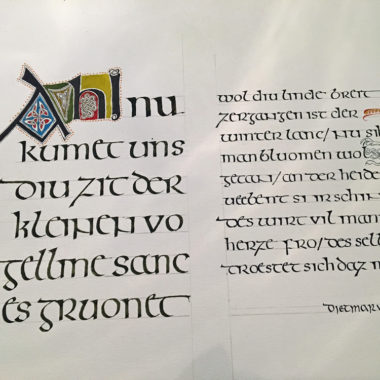 Ahi nu
kumet uns
diu zit der
kleinen vo
gelline sanc
es gruonet
wol diu linde breit
zergangen ist der
winter lanc/nu sih
man bluomen wol
getan/an der heide
uebent si ir schin
des wirt vil man
herze fro/des selb
troestet sich daz m
Dietmar v